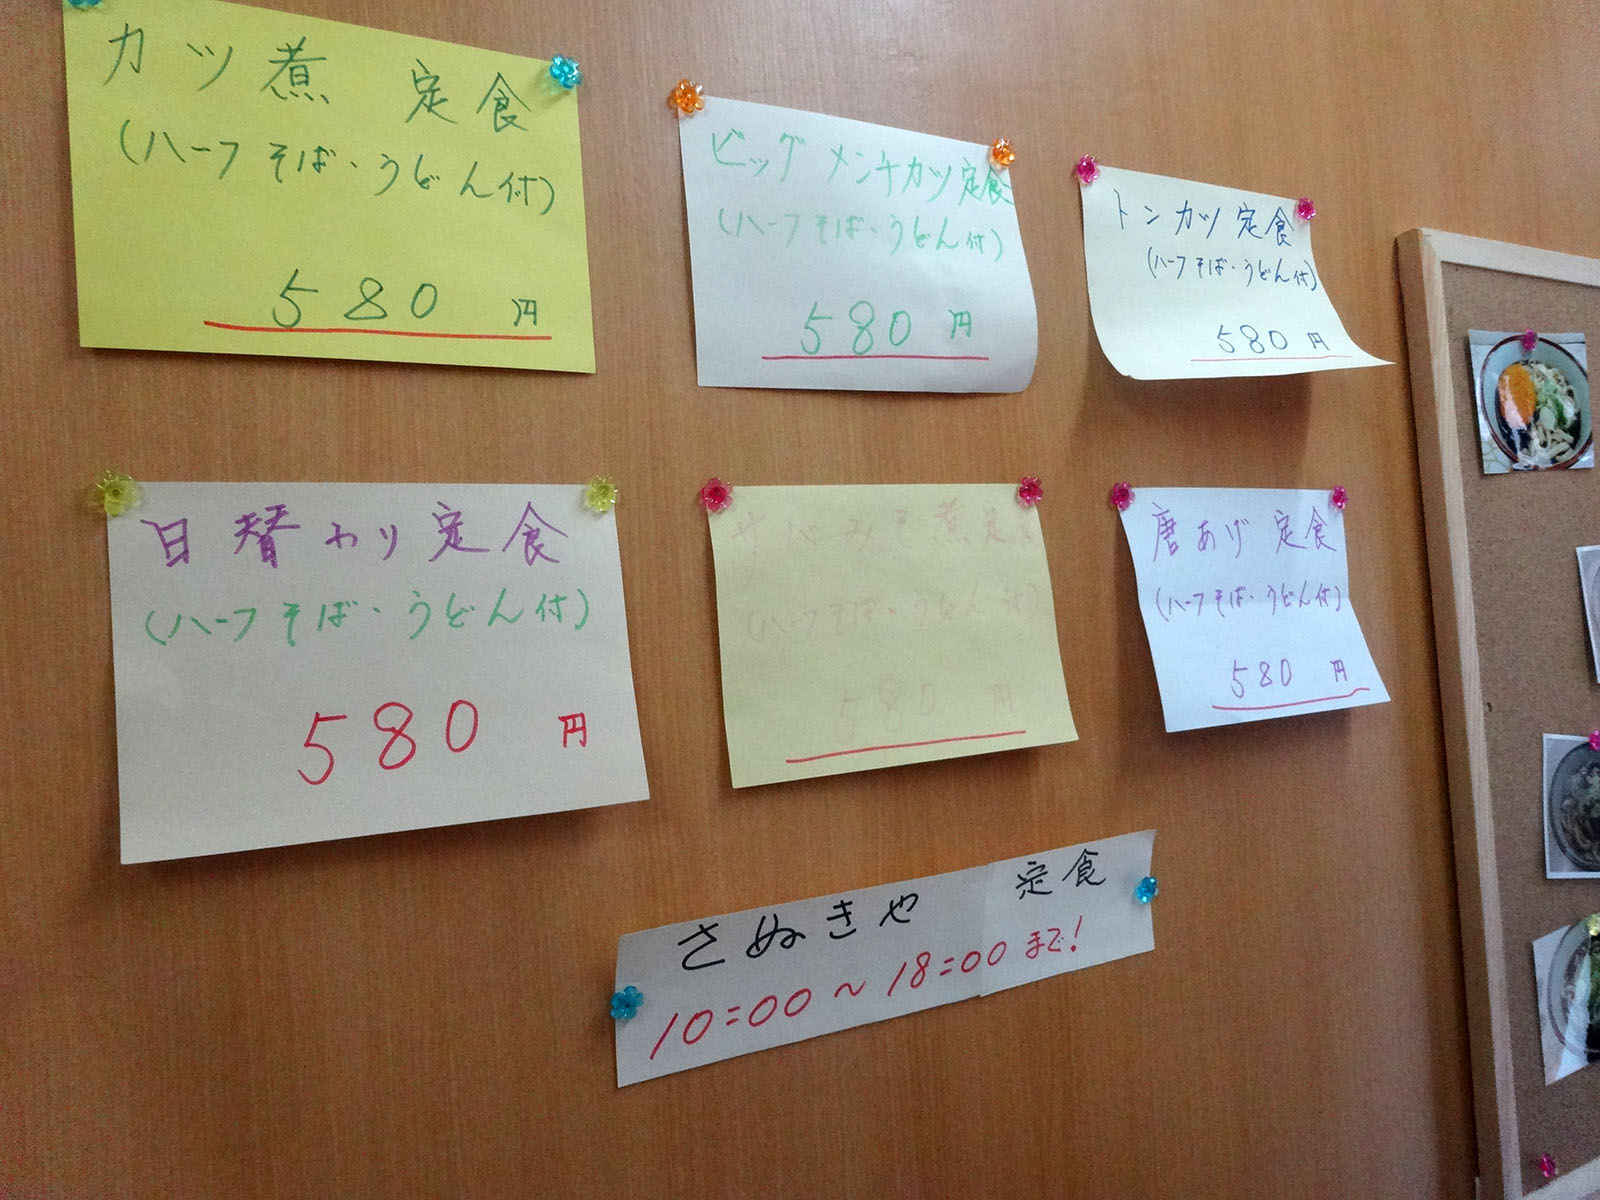 カツ煮 定食
(ハーフそば・うどん付)
580 円
ビッグメンチカツ定食
(ハーフそば・うどん付)
580 円
トンカツ定食
(ハーフそば・うどん付)
580 円
日替わり定食
(ハーフそば・うどん付)
580 円
サバみそ煮定食
(ハーフそば・うどん付)
580 円
唐あげ定食
(ハーフそば・うどん付)
580 円
さぬきや 定食
10:00～18:00まで!